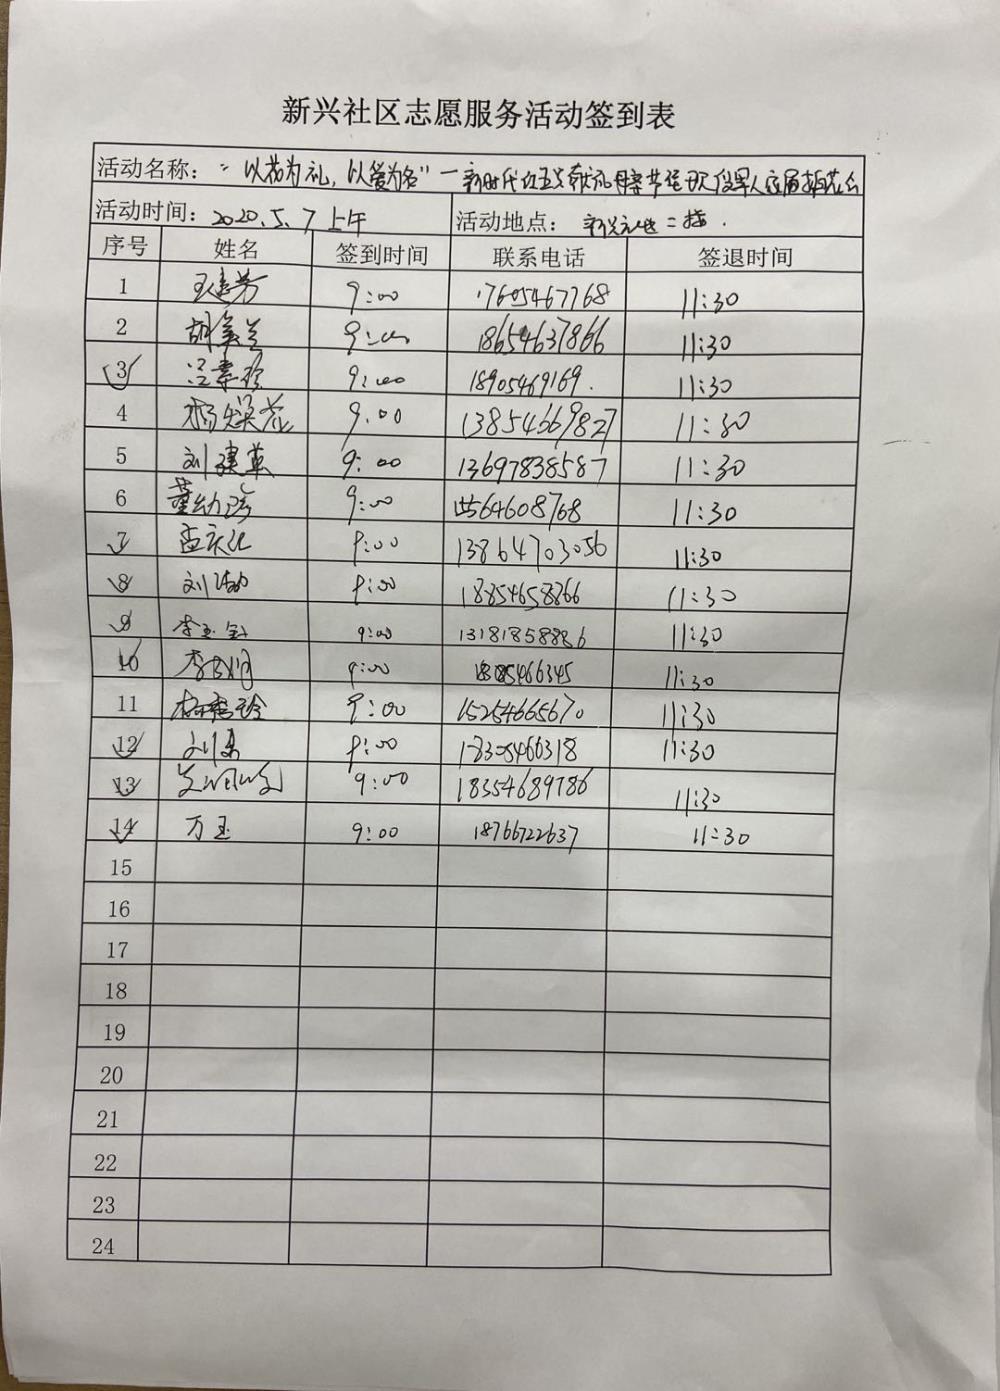 新兴社区志愿服务活动签到表
活动名称：“以花为礼，以爱为名”一新时代 母亲节
活动时间：2020.5.7上午 活动地点： 二楼.
序号 姓名 签到时间 联系电话 签退时间
1 9:00 17605467768 11:30
2 胡美兰 9:00 18654637866 11:30
3 吕素珍 9:00 18905469169. 11:30
4 杨焕花 9:00 13854669827 11:30
5 刘建英 9:00 13697838587 11:30
6 董幼 9:00 15564608768 11:30
7 孟庆 9:00 13864703056 11:30
8 刘 9:00 18854658266 11:30
9 李玉 9:00 13181858886 11:30
10 李 9:00 11:30
11 杨秀玲 9:00 15254665670 11:30
12 刘 9:00 18305466318 11:30
13 9:00 18354689786 11:30
14 万玉 9:00 18766722637 11:30
15
16
17
18
19
20
21
22
23
24